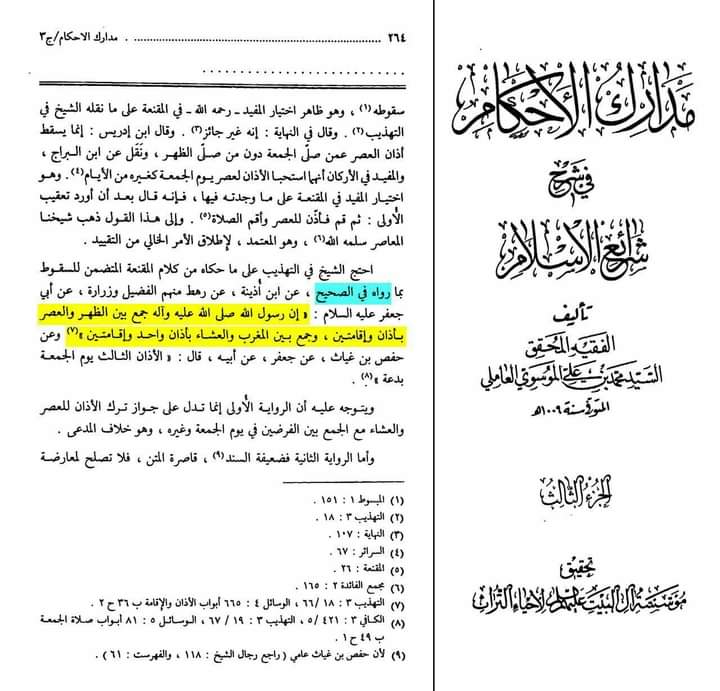 ٢٦٤ ................................................ مدارك الاحكام/ج٣
سقوطه (١) ، وهو ظاهر اختيار المفيد ـ رحمه الله ـ في المقنعة على ما نقله الشيخ في
التهذيب (٢) . وقال في النهاية : إنه غير جائز (٣) . وقال ابن إدريس : إنما يسقط
أذان العصر عمن صلّى الجمعة دون من صلّى الظهر ، ونَقَل عن ابن البراج ،
والمفيد في الأركان أنهما استحبا الأذان لعصر يوم الجمعة كغيره من الأيام (٤) . وهو
اختيار المفيد في المقنعة على ما وجدته فيها ، فإنه قال بعد أن أورد تعقيب
الأولى : ثم قم فأذّن للعصر وأقم الصلاة (٥) . وإلى هذا القول ذهب شيخنا
المعاصر سلمه الله (٦) ، وهو المعتمد ، لإطلاق الأمر الخالي من التقييد .
احتج الشيخ في التهذيب على ما حكاه من كلام المقنعة المتضمن للسقوط
بما رواه في الصحيح ، عن ابن أُذينة ، عن رهط منهم الفضيل وزرارة ، عن أبي
جعفر عليه السلام : « إن رسول الله صلى الله عليه وآله جمع بين الظهر والعصر
بأذان وإقامتين ، وجمع بين المغرب والعشاء بأذان واحد وإقامتين » (٧) وعن
حفص بن غياث ، عن جعفر ، عن أبيه ، قال : « الأذان الثالث يوم الجمعة
بدعة » (٨) .
ويتوجه عليه أن الرواية الأولى إنما تدل على جواز ترك الأذان للعصر
والعشاء مع الجمع بين الفرضين في يوم الجمعة وغيره ، وهو خلاف المدعى .
وأما الرواية الثانية فضعيفة السند (٩) ، قاصرة المتن ، فلا تصلح لمعارضة
(١) المبسوط ١ : ١٥١ .
(٢) التهذيب ٣ : ١٨ .
(٣) النهاية : ١٠٧ .
(٤) السرائر : ٦٧ .
(٥) المقنعة : ٢٦ .
(٦) مجمع الفائدة ٢ : ١٦٥ .
(٧) التهذيب ٣ : ١٨ / ٦٦ ، الوسائل ٤ : ٦٦٥ أبواب الأذان والإقامة ب ٣٦ ح ٢ .
(٨) الكافي ٣ : ٤٢١ / ٥ ، التهذيب ٣ : ١٩ / ٦٧ ، الوسائل ٥ : ٨١ أبواب صلاة الجمعة
ب ٤٩ ح ١ .
(٩) لأن حفص بن غياث عامي ( راجع رجال الشيخ : ١١٨ ، والفهرست : ٦١ ) .
مدارك الأحكام
في شرح
شرائع الإسلام
تأليف
الفقيه المحقق
السيد محمد بن علي الموسوي العاملي
المتوفى سنة ١٠٠٩هـ
الجزء الثالث
تحقيق
مؤسسة آل البيت عليهم السلام لإحياء التراث